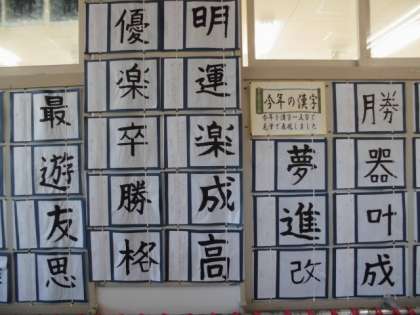 今年の漢字
今年を漢字一文字で
毛筆で表現しました
勝
器
叶
成
夢
進
改
明
運
楽
成
高
優
楽
卒
勝
格
最
遊
友
思